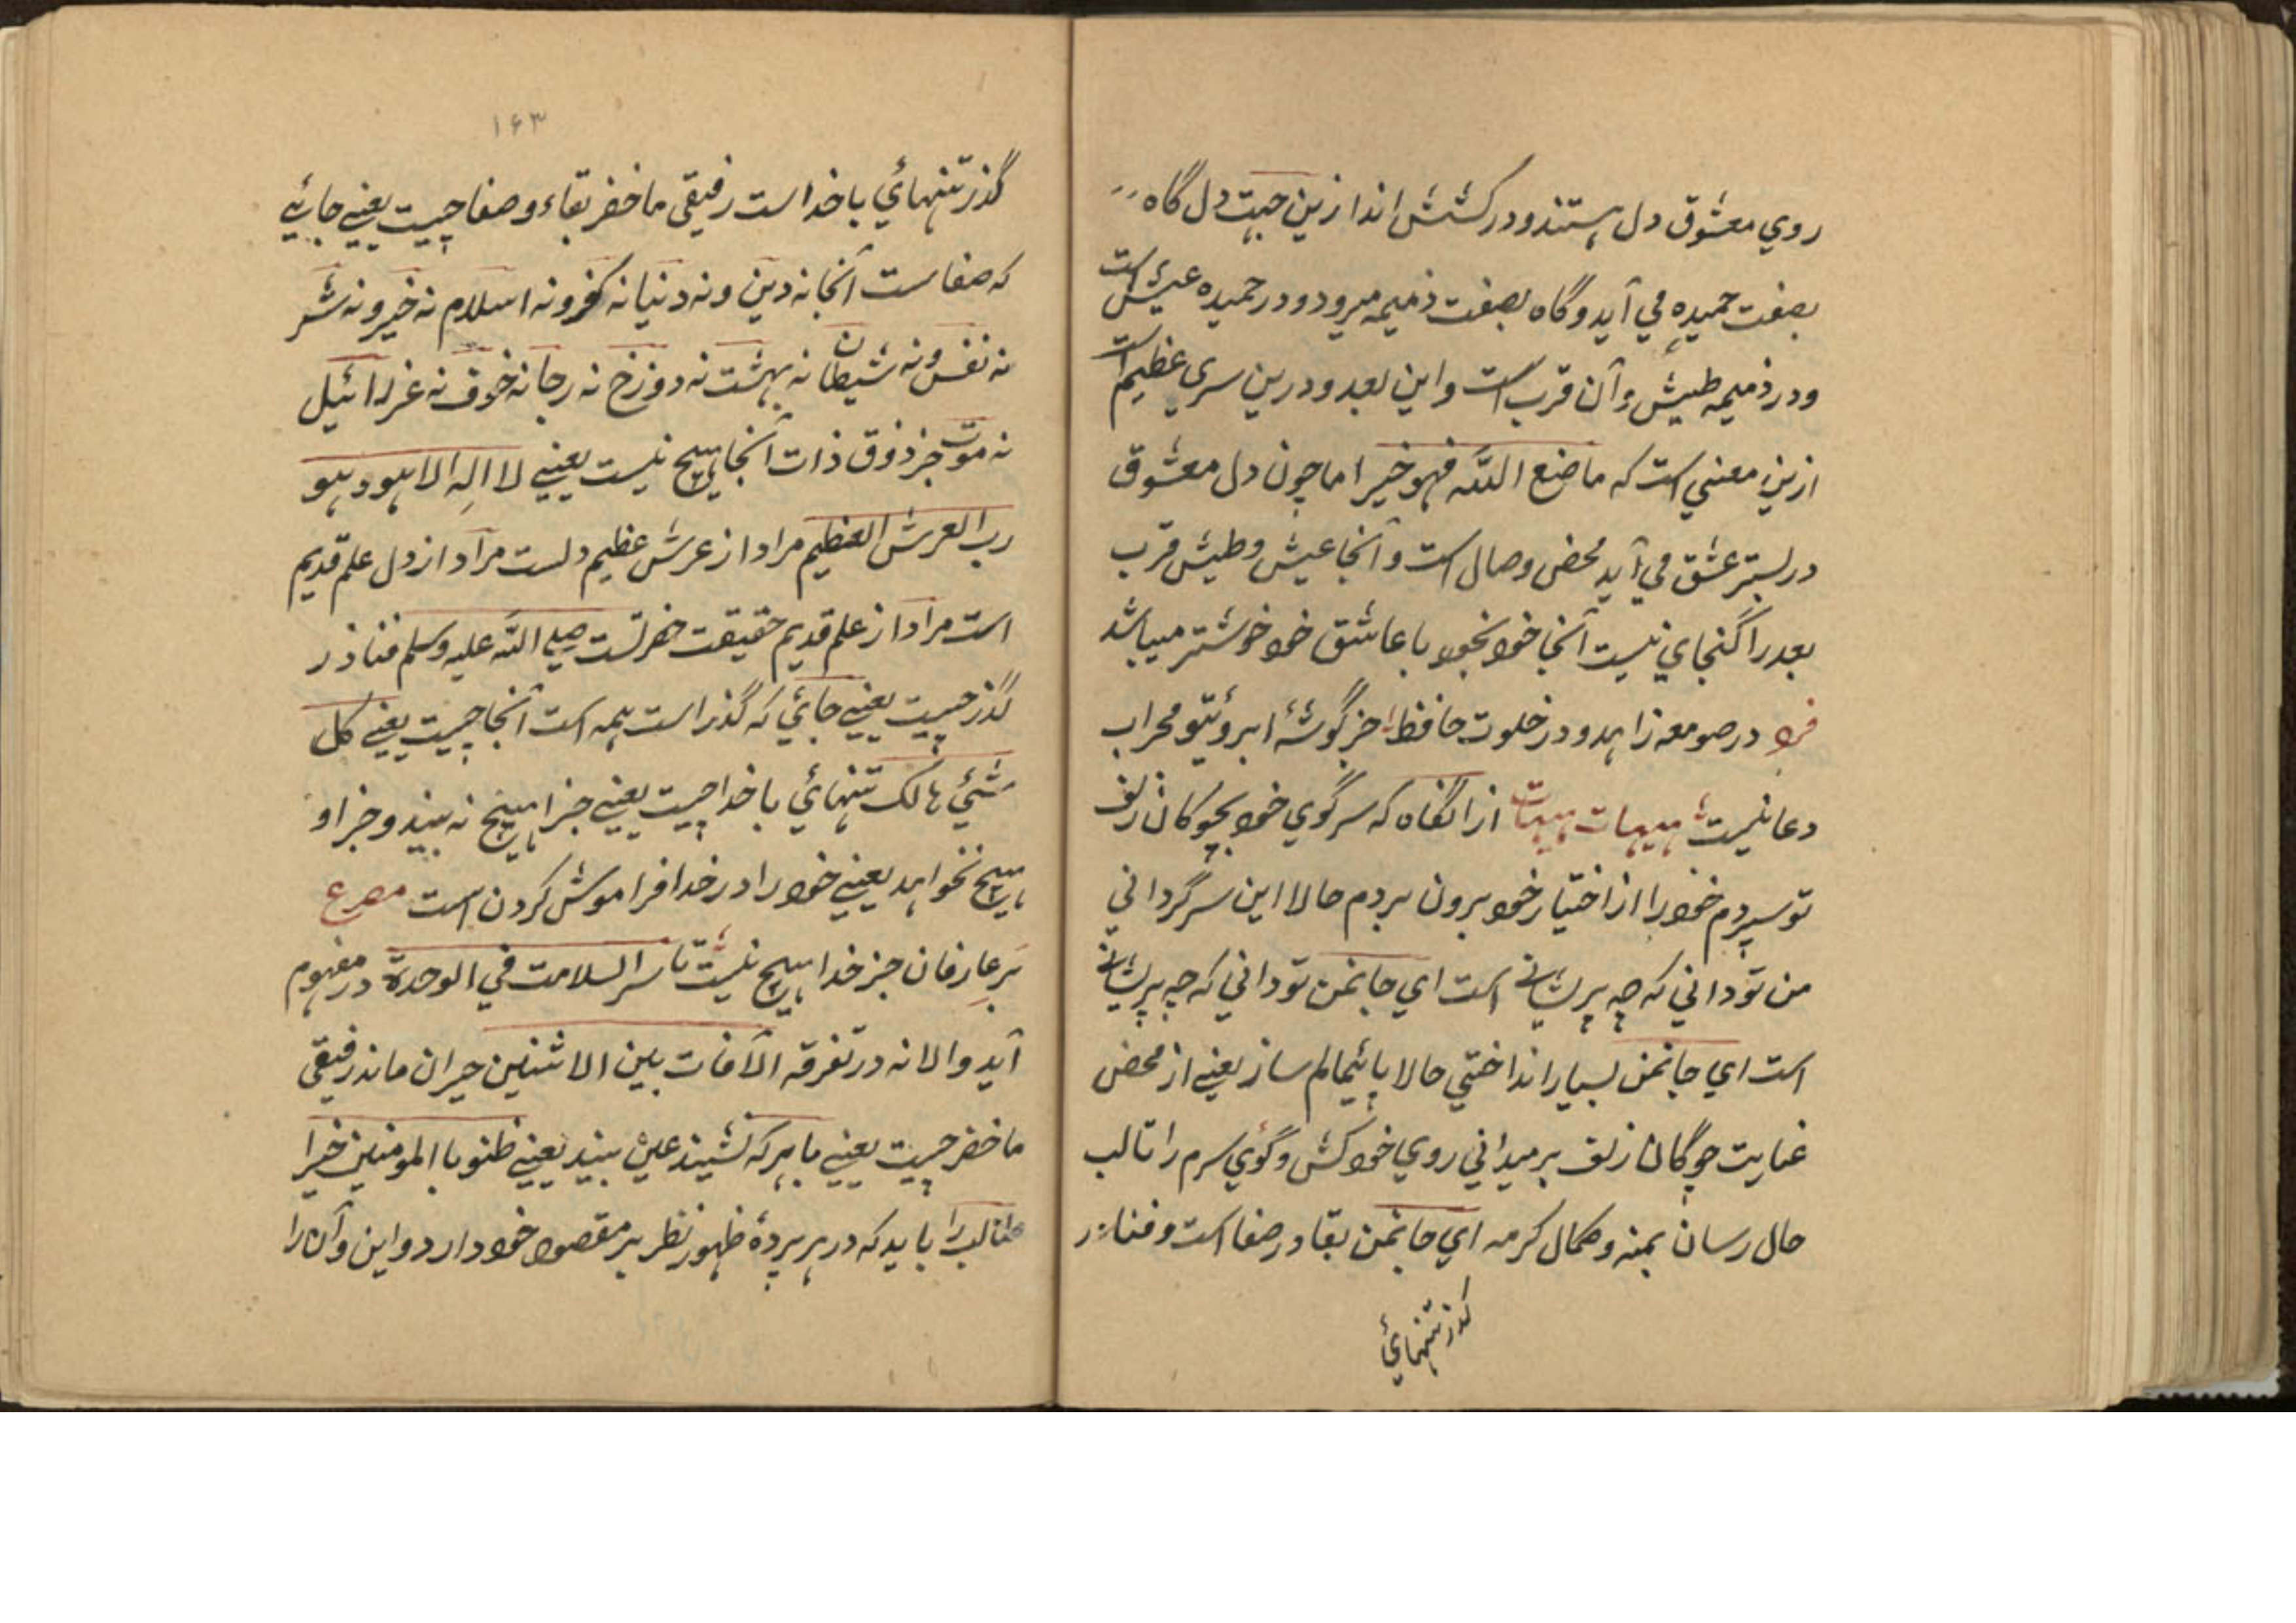 روي معشوق دل هستند و در كشش اند ازين جهت دل گاه
بصفت حميده مي آيد و گاه بصفت ذميمه ميرود و در حميده عيش است
و در ذميمه طيش و آن قرب است و اين بعد و درين سري عظيم است
ازين معني است كه ما صنع الله فهو خير اما چون دل معشوق
در بستر عشق مي آيد محض وصال است و آنجا عيش و طيش قرب
بعد را گنجاي نيست آنجا خود بخود با عاشق خود خوشتر ميباشد
فرد در صومعه زاهد و در خلوت حافظ جز گوشۀ ابروئتو محراب
دعا نيست هيهات هيهات از انگاه كه سر گوي خود بچوكان زلف
تو سپردم خود را از اختيار خود برون بردم حالا اين سر گرداني
من تو داني كه چه پريشانے است اي جانمن تو داني كه چه پريشانے
است اي جانمن بسيار انداختي حالا پائيمالم ساز يعنے از محض
عنايت چوگان زلف بر ميداني روي خود كش و گوي سرم را تا لب
حال رسان بمنه و كمال كرمه اي جانمن بقا در صفا است و فنا در
گذر تنهائي
۱۶۳
گذر تنهائي با خدا است رفيقي ما خضر بقاء و صفا چيست يعنے جائيے
كه صفا است آنجا نه دين و نه دنيا نه كفر و نه اسلام نه خير و نه شر
نه نفس و نه شيطان نه بهشت نه دوزخ نه رجا نه خوف نه عزرائيل
نه موت جز ذوق ذات آنجا هيچ نيست يعنے لا اله الا هو و هو
رب العرش العظيم مراد از عرش عظيم دلست مراد از دل علم قديم
است مراد از علم قديم حقيقت حضرتست صلي الله عليه وسلم فنا در
گذر چيست يعنے جائي كه گذر است همه است آنجا چيست يعنے كل
شئي هالك تنهائي با خدا چيست يعنے جز او هيچ نه بيند و جز او
هيچ نخواهد يعنے خود را در خدا فراموش كردن است مصرع
بر عارفان جز خدا هيچ نيست تا سر السلامت في الوحدة در مفهوم
آيد والا نه در تفرقه الآفات بين الاثنين حيران ماند رفيقي
ما خضر چيست يعنے با هر كه نشيند عين بيند يعنے ظنوبا المومنين خيرا
طالب را بايد كه در هر پردۀ ظهور نظر بر مقصود خود دارد و اين و آن را